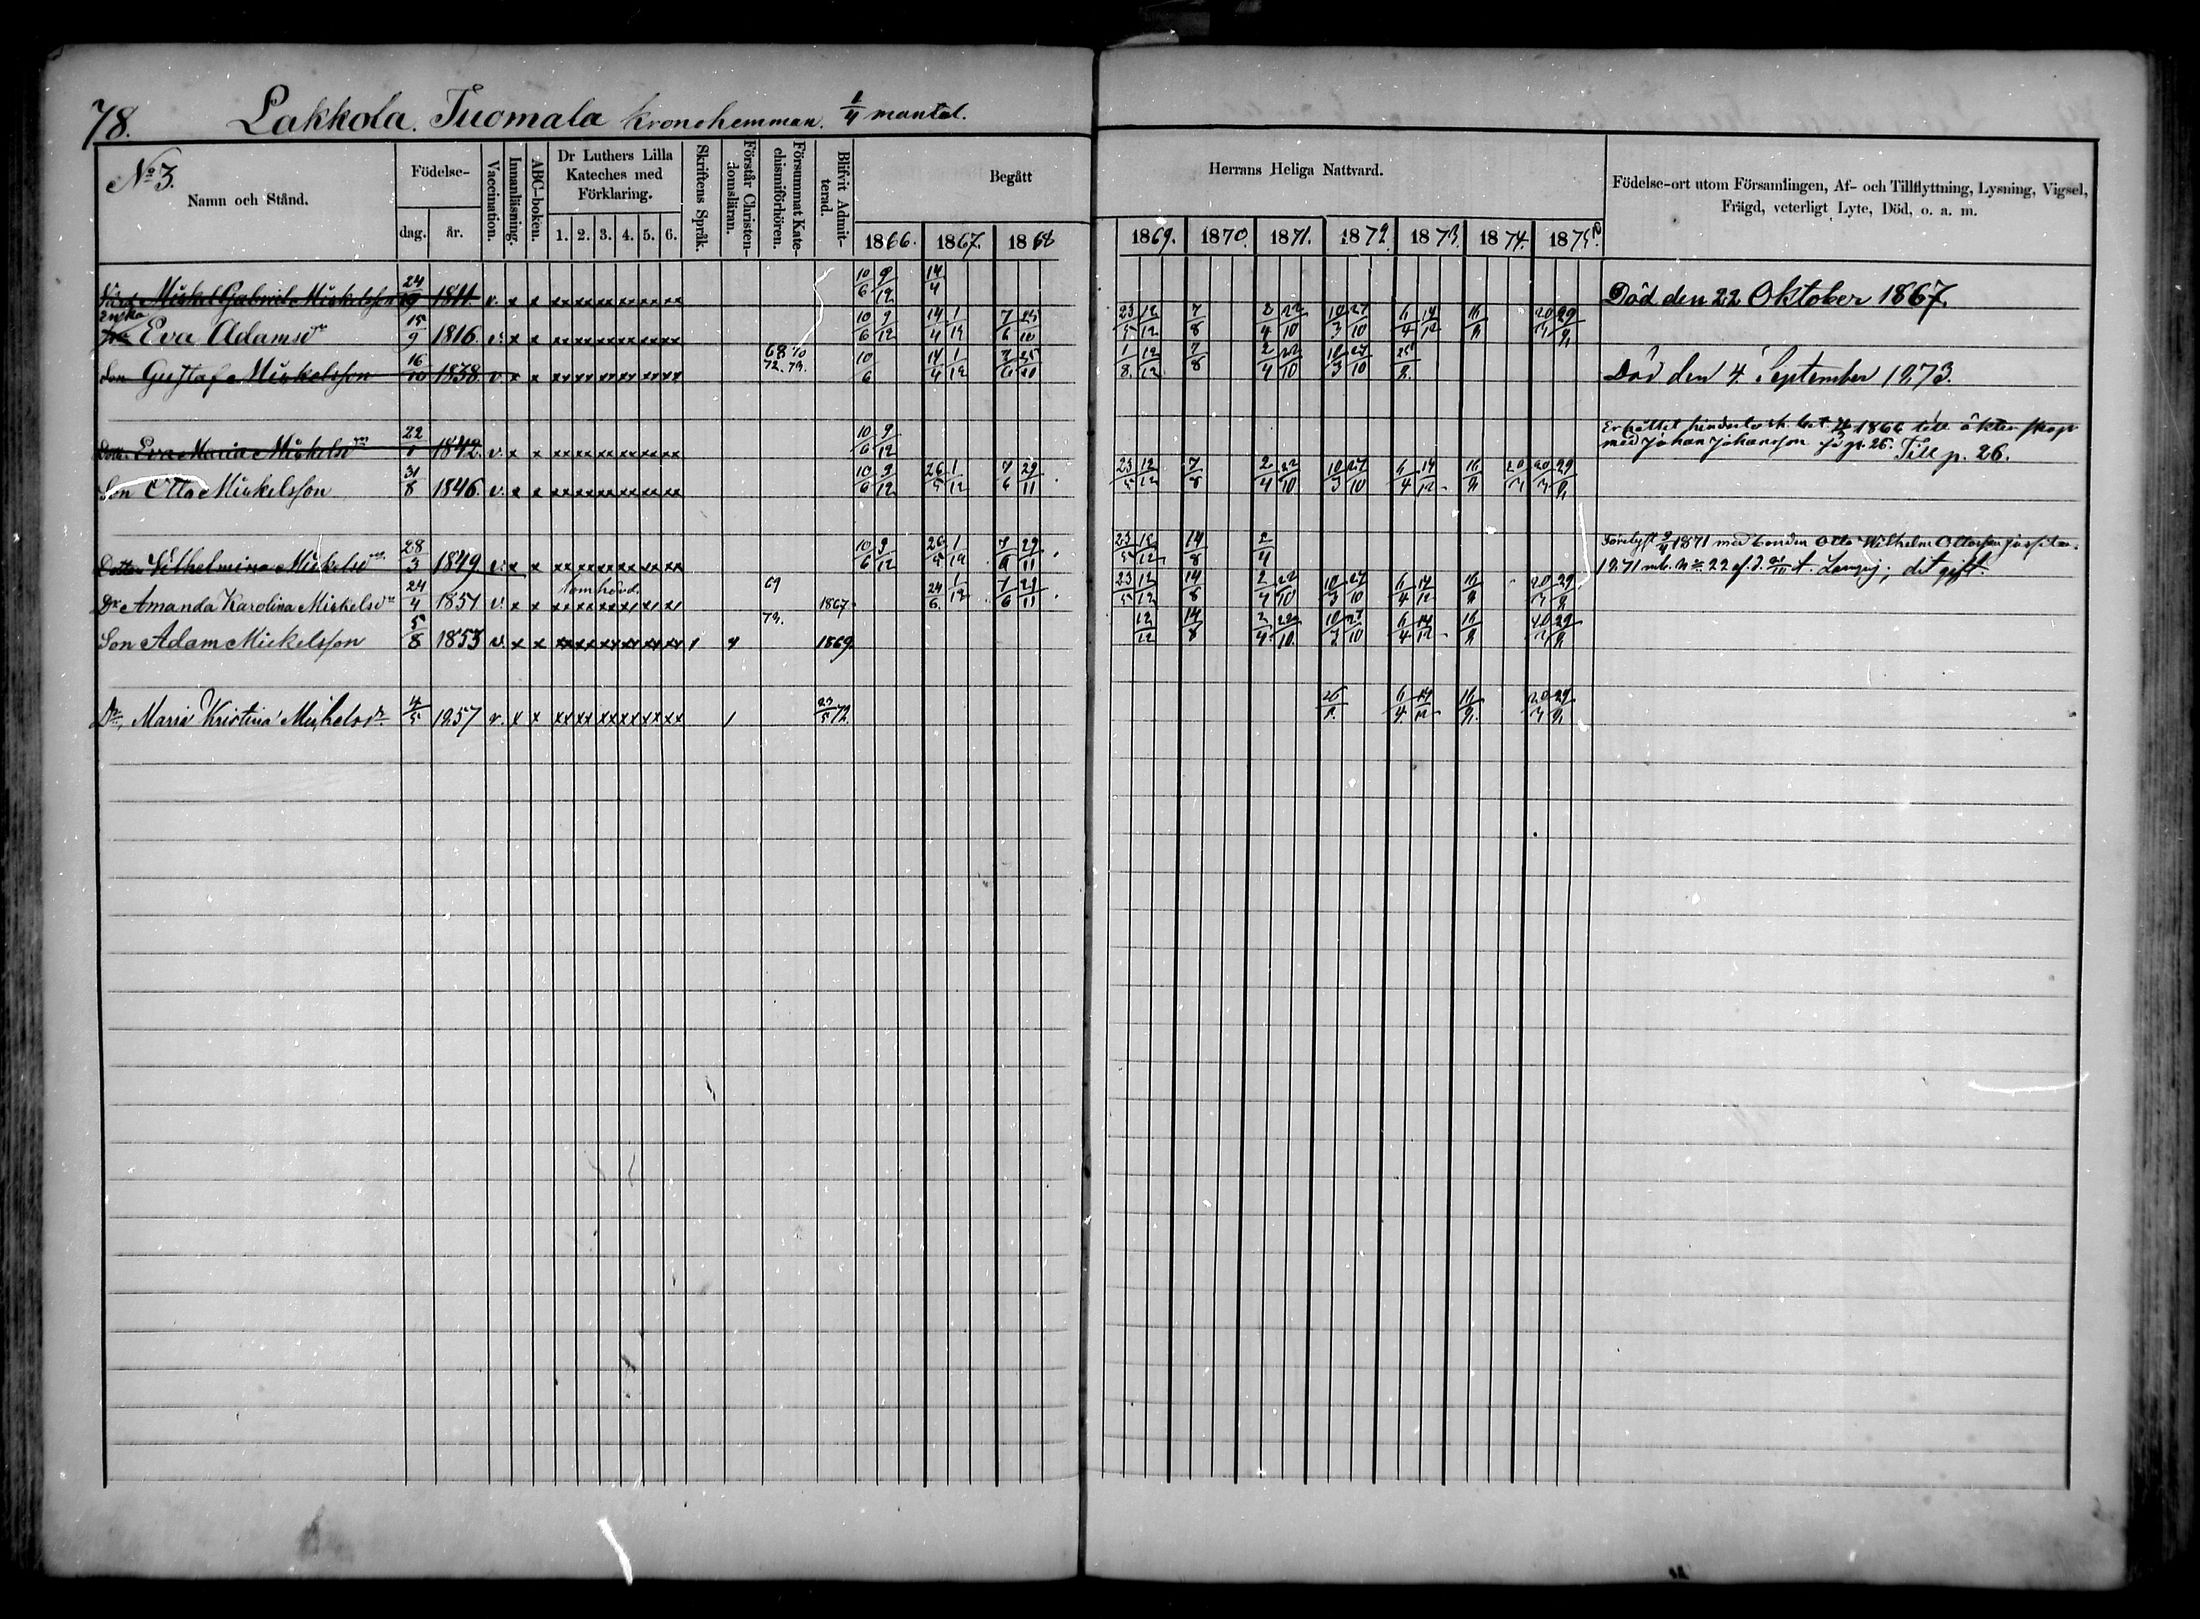 78. Lakkola. Tuomala kronohemman. 1/4 mantal.
No 3.
Namn och Stånd.
Födelse-
dag. år.
Vaccination.
Innanläsning.
ABC-boken.
Dr Luthers Lilla Kateches med Förklaring.
1. 2. 3. 4. 5. 6.
Skriftens Språk.
Förstår Christen-domsläran.
Försummat Kate-chismiförhören.
Blifvit Admit-terad.
Begått Herrans Heliga Nattvard.
1866. 1867. 1868 1869. 1870. 1871. 1872. 1873. 1874. 1875.
Födelse-ort utom Församlingen, Af- och Tillflyttning, Lysning, Vigsel,
Frägd, veterligt Lyte, Död, o. a. m.
Mickel Gabriel Mickelsson 1811. v. x x xx xx xx xx xx xx 10/6 9/12 14/4 Död den 22 Oktober 1867.
enka
Eva Adamsdr 15/9 1816. v. x x xx xx xx xx xx xx 10/6 9/12 14/4 1/12 7/6 25/10 23/5 12/12 7/8 2/4 22/10 10/3 27/10 6/4 14/12
Son Gustaf Mickelsson 16/10 1838. v. x x xx xx xx xx xx xx 68 70 72. 73. 10/6 14/4 1/12 7/6 25/10 1/8. 12/12 7/8 2/4 22/10 10/3 27/10 Död den 4 September 1873.
Eva Maria Mickelsdr 22/1 1842. v. x x xx xx xx xx xx xx 10/6 9/12
med Johan Johansson på p. 26. Till p. 26.
Son Otto Mickelsson 31/8 1846. v. x x xx xx xx xx xx xx 10/6 9/12 26/5 1/12 7/6 29/11 23/5 12/12 7/8 2/4 22/10 10/3 27/10 6/4 14/12
Dotter Vilhelmina Mickelsdr 28/3 1849 v. x x xx xx xx xx xx xx 10/6 9/12 26/5 1/12 7/6 29/11 23/5 12/12 14/8 2/4
1871 med bonden Otto Wilhelm Ottosson
1871
dit gift.
lomhörd.
Dr Amanda Karolina Mickelsdr 24/4 1851 v. x x xx xx xx xx xx xx 69 1867. 24/6. 1/12 7/6 29/11 23/5 12/12 14/8 2/4 22/10 10/3 27/10 6/4 14/12
Son Adam Mickelsson 5/8 1853 v. x x xx xx xx xx xx xx 73. 1869. 12/12 14/8 2/4 22/10 10/3 27/10 6/4 14/12
Dr. Maria Kristina Mickelsdr. 4/5 1857 v. x x xx xx xx xx xx xx 23/5 72. 6/4 14/12